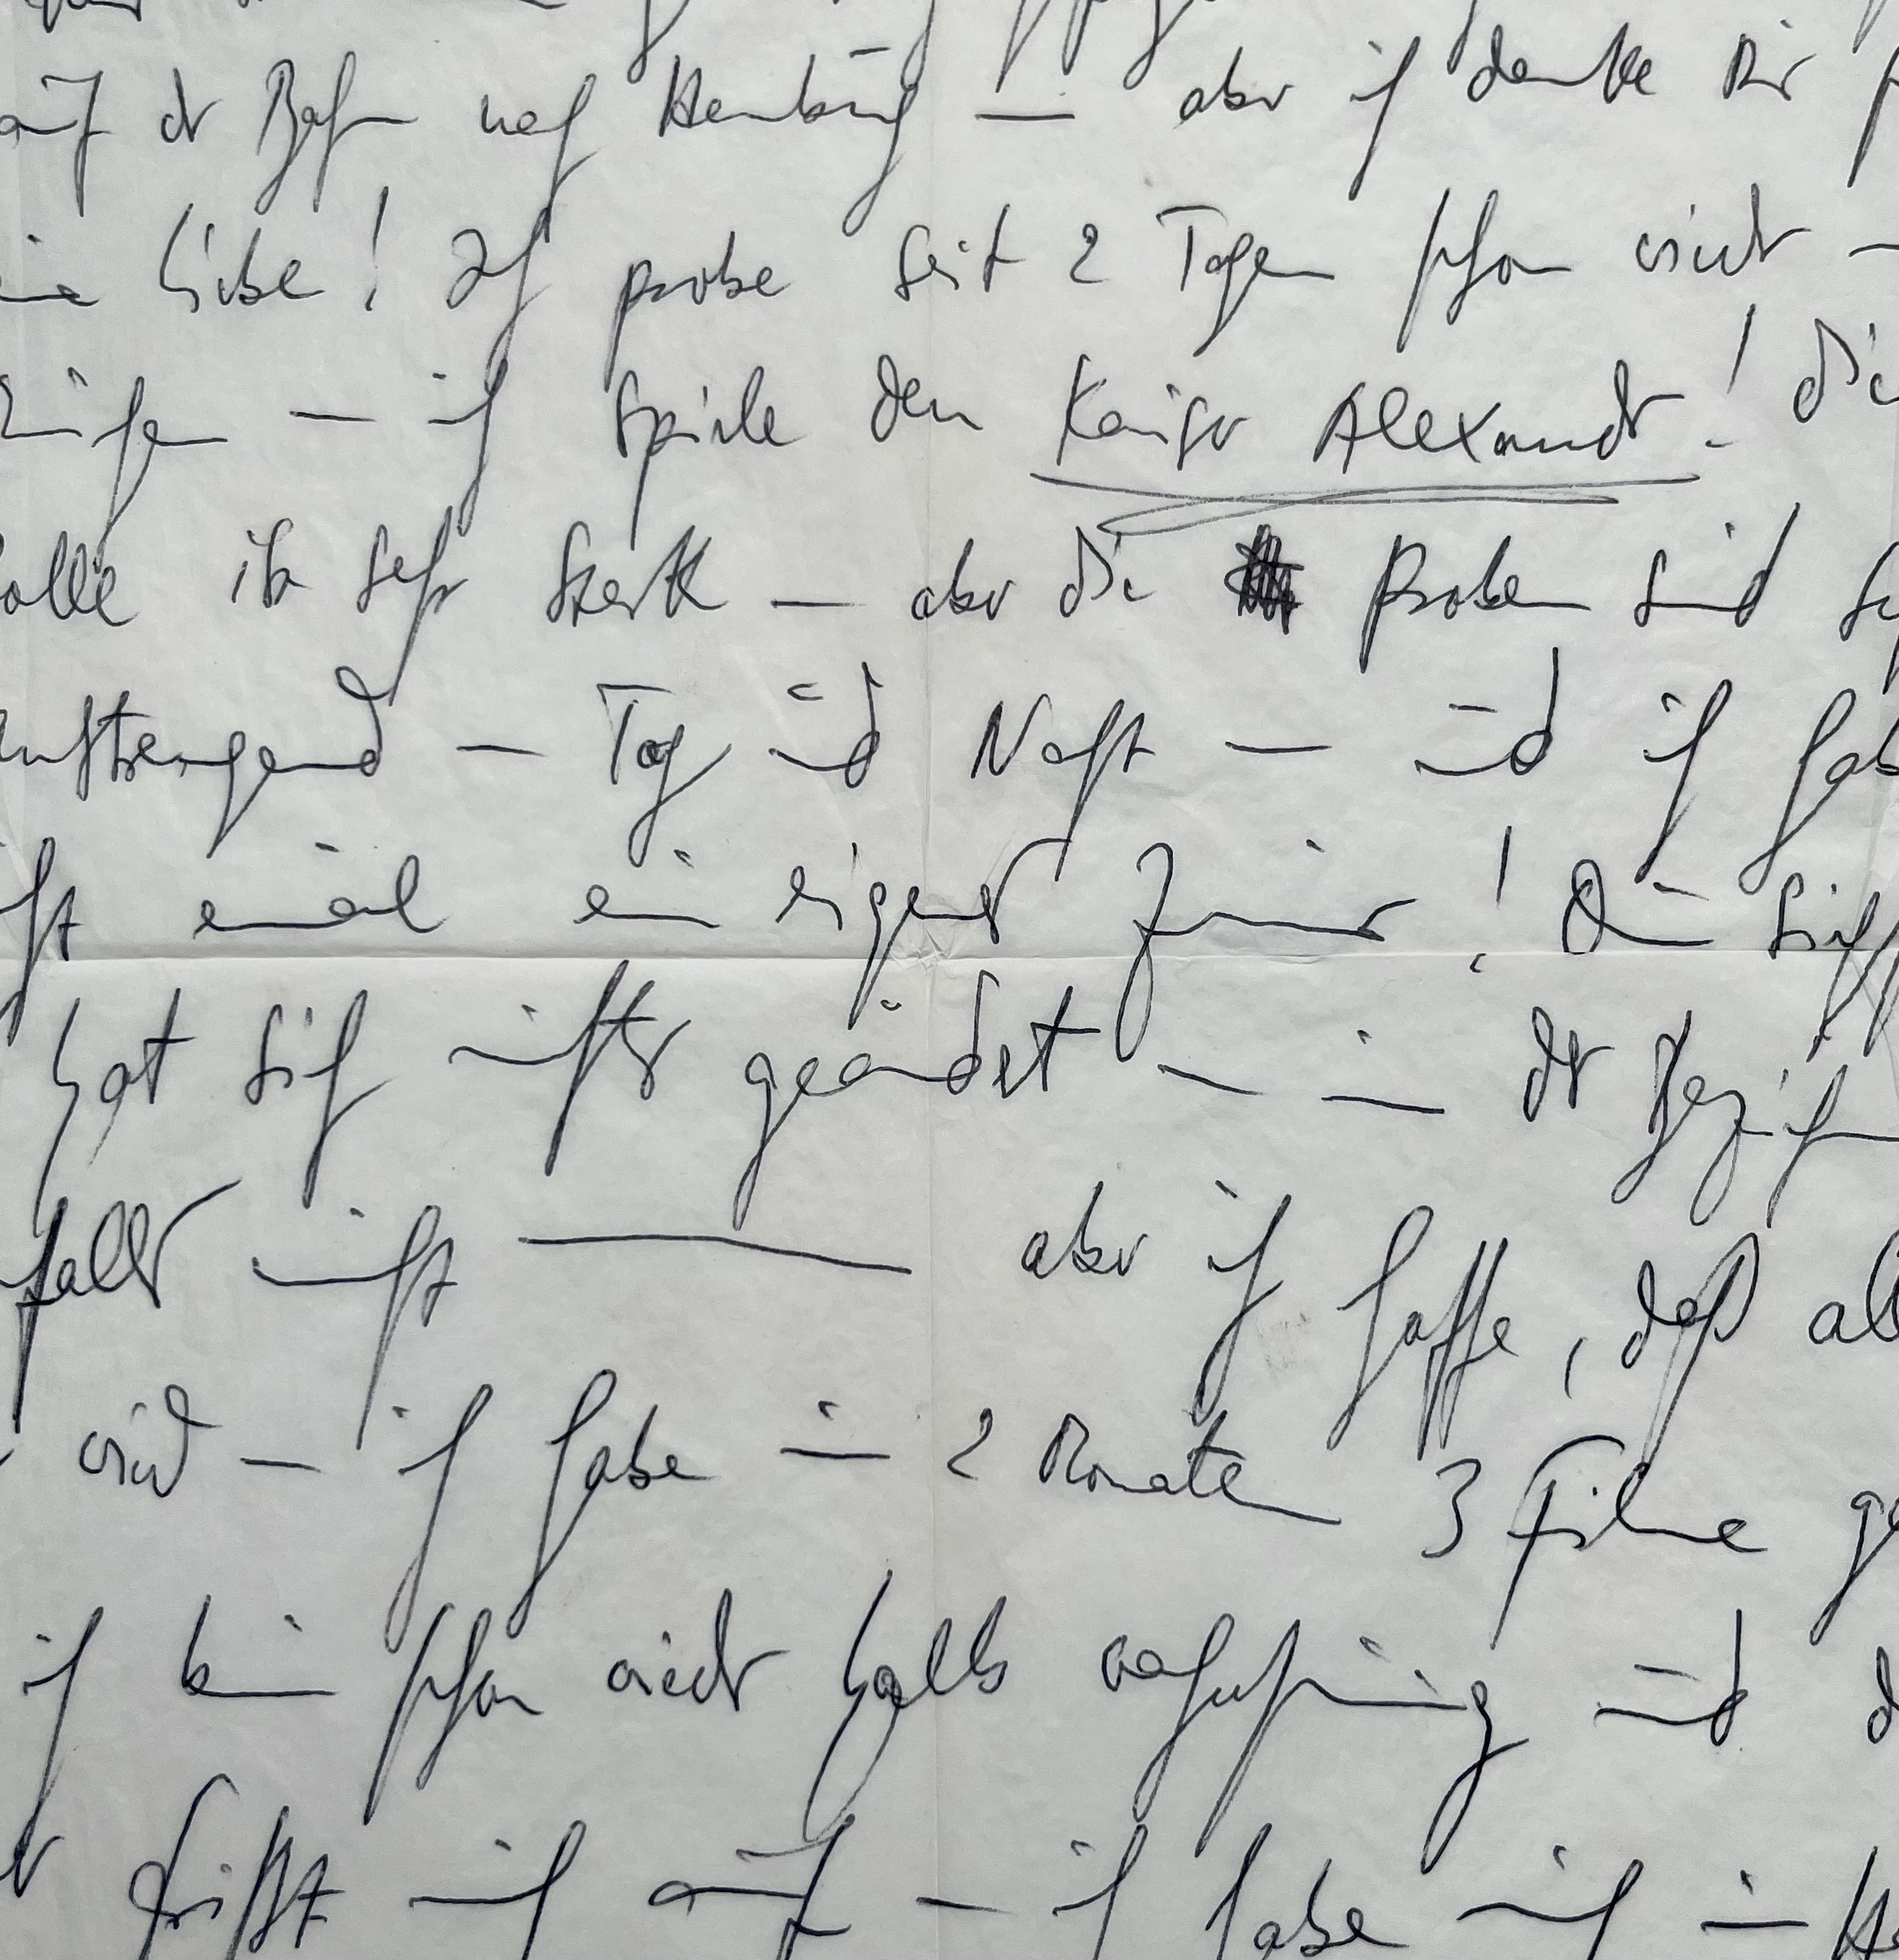 auf der Bahn nach Hamburg — aber ich danke Dir
Liebe! Ich probe seit 2 Tagen schon wieder —
— ich spiele den Kaiser Alexander! Die
Rolle ist sehr stark — aber die Proben sind
anstrengend — Tag und Nacht — und ich hab
nicht einmal ein eigenes Zimmer! Du
hat sich nichts geändert — in der
falls nicht — aber ich hoffe, daß
wird — ich habe in 2 Monaten 3 Filme
ich bin schon wieder halb wahnsinnig und
frißt mich auf — ich habe mich in